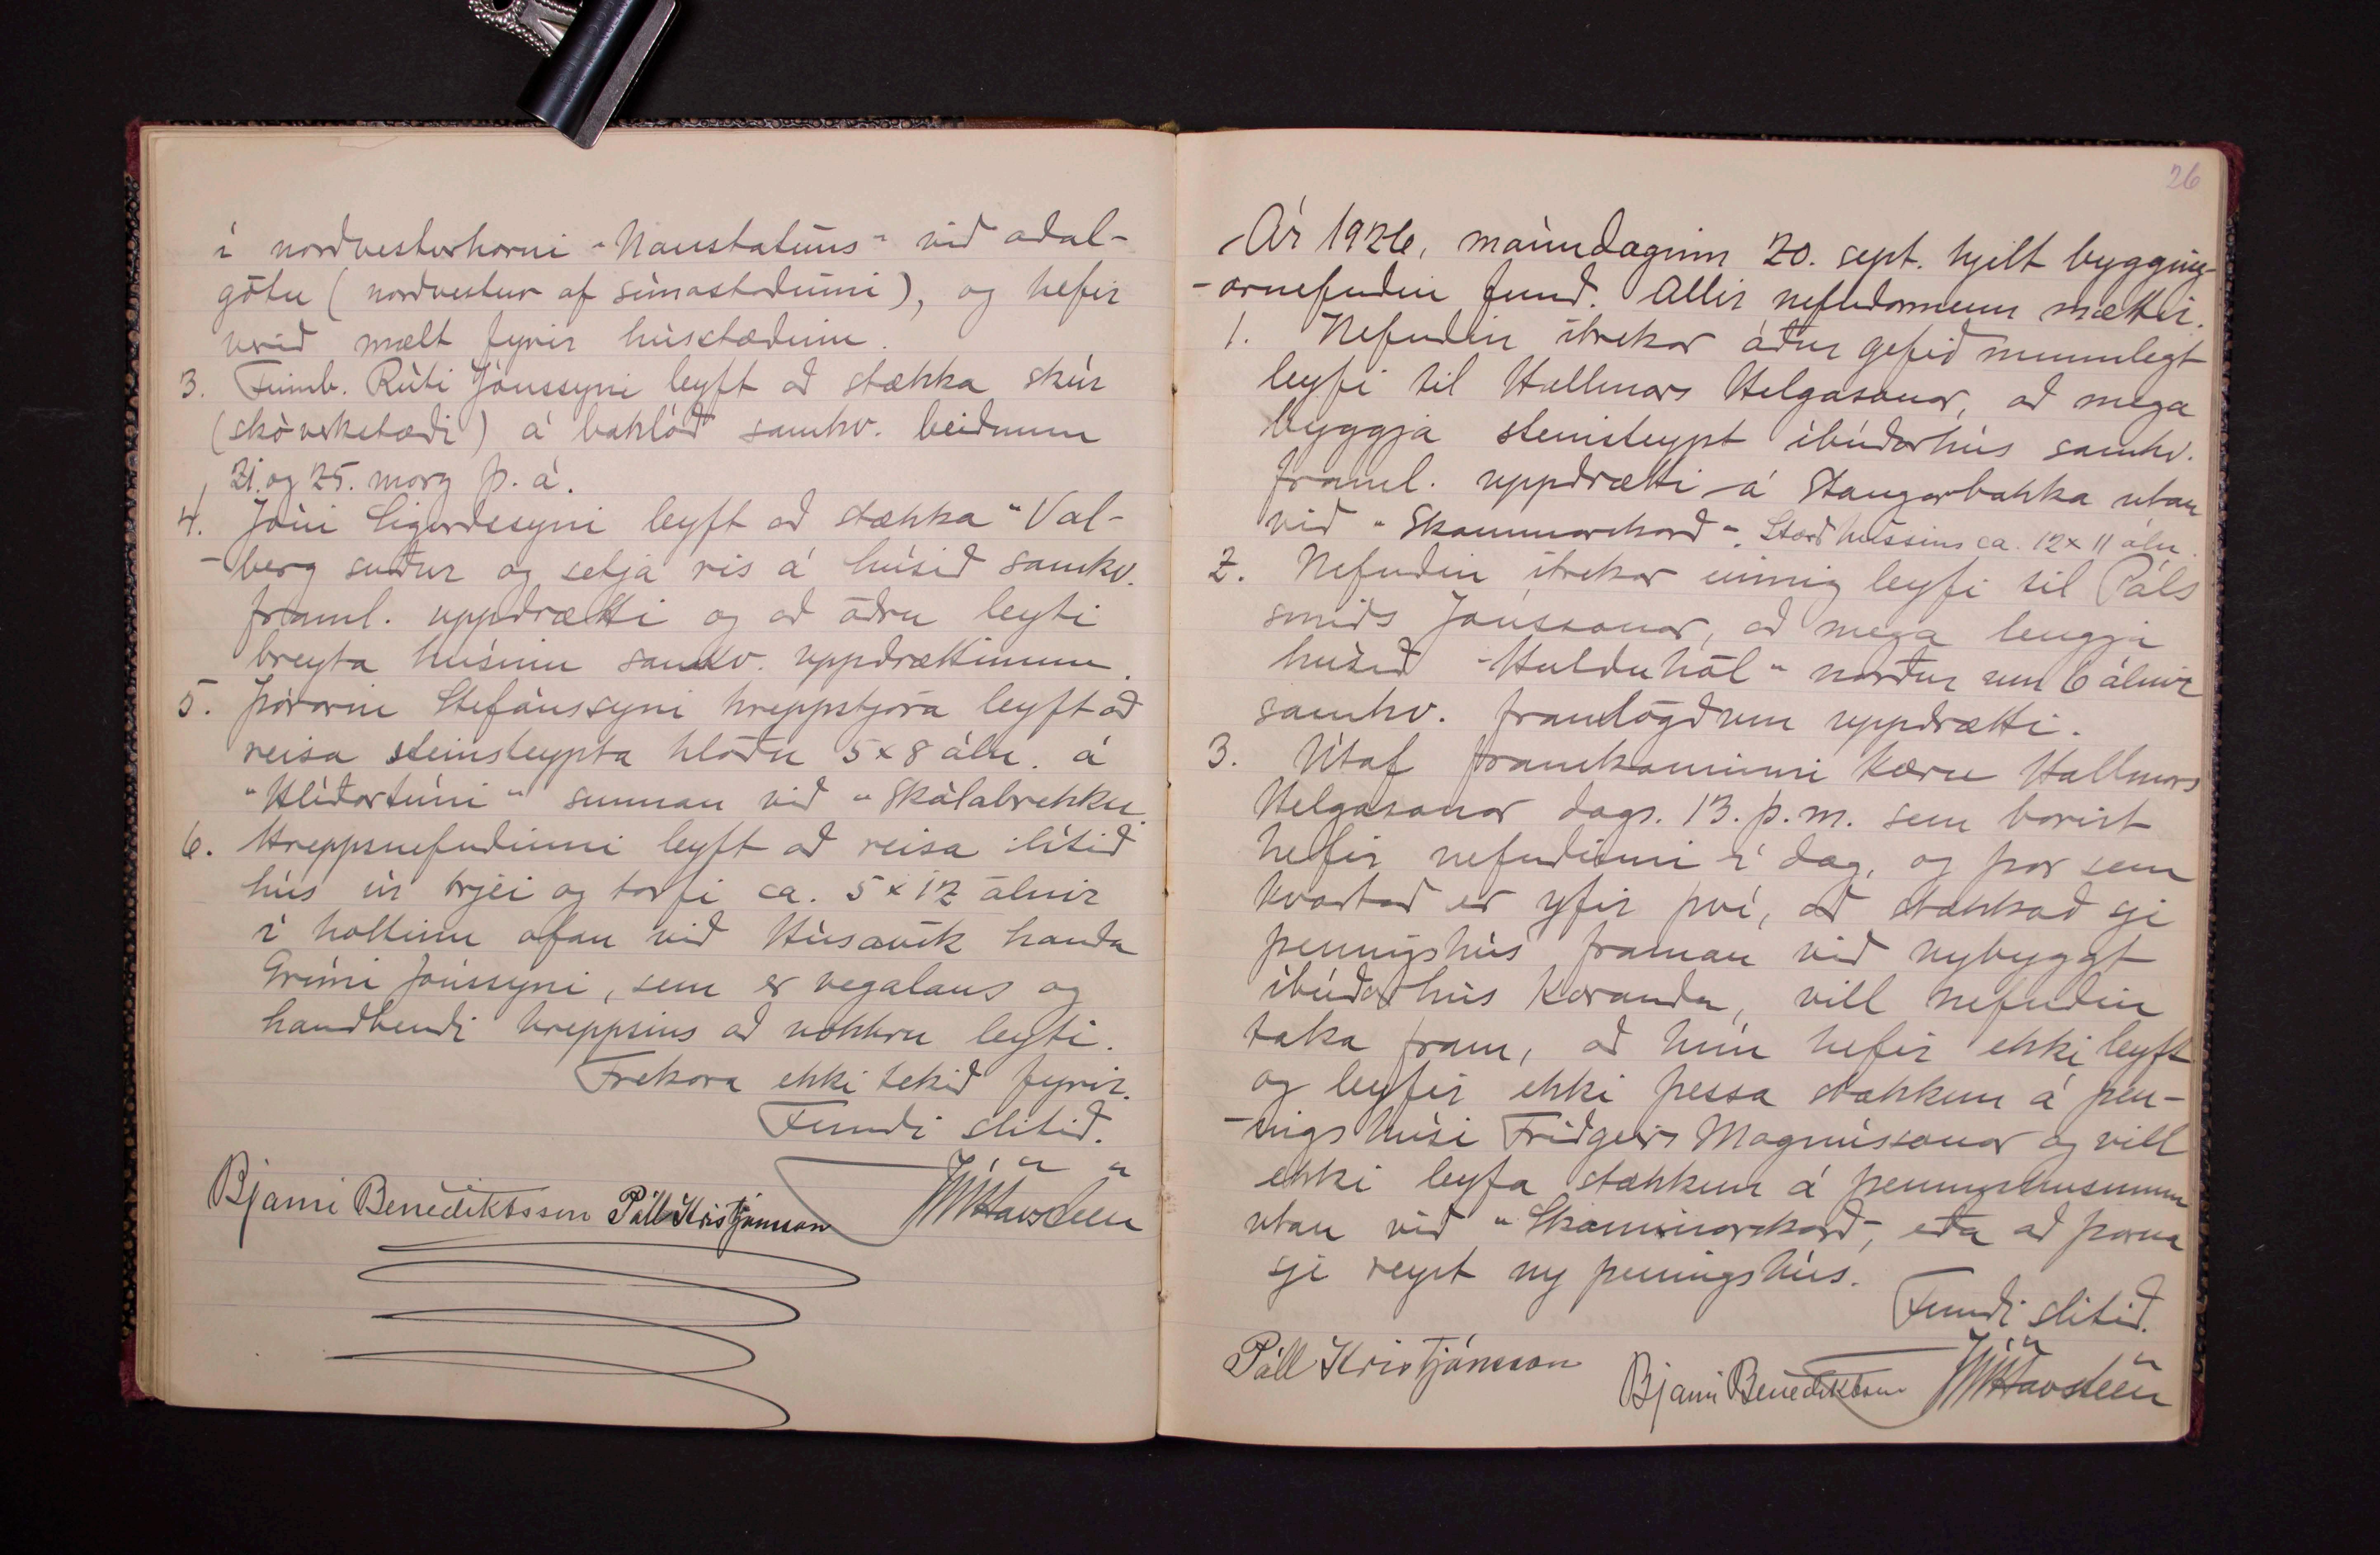 í norðvesturhorni "Naustatúns" við aðal-
götu (norðvestur af símastöðinni), og hefir
verið mælt fyrir hússtæðinu.
3. Finnb. Rúti Jónssyni leyft að stækka skúr
(skóverkstæði) á baklóð samkv. beiðnum
21. og 25. marz þ. á.
4. Jóni Sigurðssyni leyft að stækka "Val-
-berg suður og setja ris á húsið samkv.
framl. uppdrætti og að öðru leyti
breyta húsinu samkv. uppdrættinum.
5. Þórarni Stefánssyni hreppstjóra leyft að
reisa steinsteypta hlöðu 5 x 8 áln. á
"Hlíðartúni" sunnan við "Skálabrekku".
6. Hreppsnefndinni leyft að reisa lítið
hús úr trjéi og torfi ca. 5 x 12 álnir
í holtinu ofan við Húsavík handa
Grími Jónssyni, sem er vegalaus og
handbendi hreppsins að nokkru leyti.
Frekara ekki tekið fyrir.
Fundi slitið.
Bjarni Benediktsson Páll Kristjánsson JVHavsteen
26
Ár 1926, mánudaginn 20. sept. hjelt bygging-
-arnefndin fund. Allir nefndarmenn mættir.
1. Nefndin ítrekar áður gefið munnlegt
leyfi til Hallmars Helgasonar, að mega
byggja steinsteypt íbúðarhús samkv.
framl. uppdrætti á Stangarbakka utan
við "Skammarskarð". Stærð hússins ca. 12 x 11 áln.
2. Nefndin ítrekar einnig leyfi til Páls
smiðs Jónssonar, að mega lengja
húsið "Hulduhól" norður um 6 álnir
samkv. framlögðum uppdrætti.
3. Útaf framkominni kæru Hallmars
Helgasonar dags. 13. þ. m. sem borist
hefir nefndinni í dag, og þar sem
kvartað er yfir því, að stækkað sje
peningshús framan við nybyggt
íbúðarhús kæranda, vill nefndin
taka fram, að hún hefir ekki leyft
og leyfir ekki þessa stækkun á pen-
-ingshúsi Friðgeirs Magnússonar og vill
ekki leyfa stækkun á peningshúsunum
utan við "Skammarskarð", eða að þarna
sje reyst ny peningshús.
Fundi slitið.
Páll Kristjánsson
Bjarni Benediktsson JVHavsteen